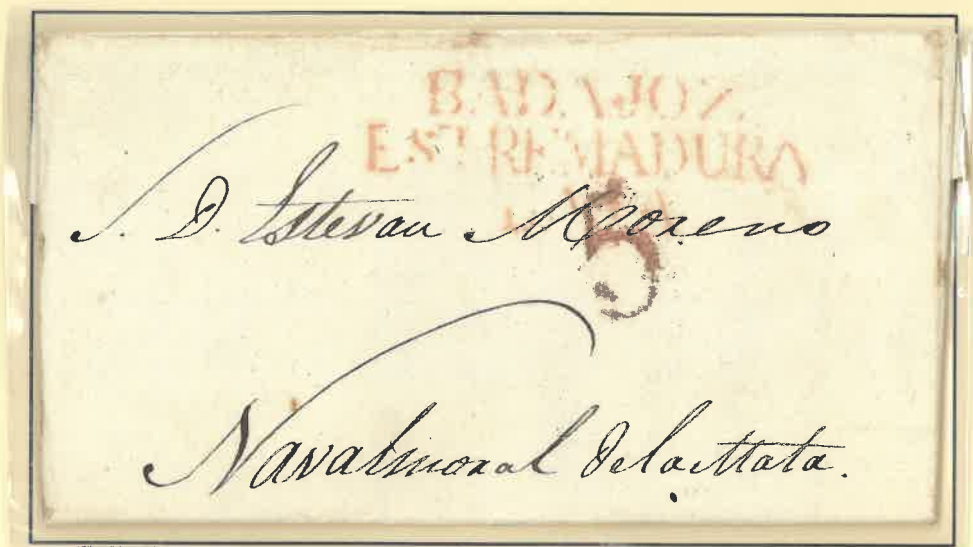 BADAJOZ.
ESTREMADURA
5
S. D. Estevan Moreno
Navalmoral De la Mata.